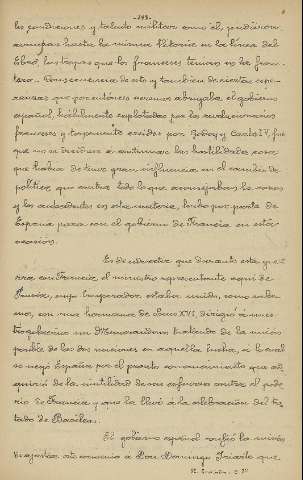 -293-
las condiciones y talento militar como él, pudieron
arrojar hasta la misma Vitoria en la línea del
Ebro, las tropas que los franceses tenían en la fron-
tera. Consecuencia de esto y también de ciertas espe-
ranzas que por entonces abrigaba el gobierno
español, hábilmente explotadas por los revolucionarios
franceses y torpemente creídas por Godoy y Carlos IV, fue
que no se decidiera a continuar las hostilidades, cosa
que había de tener gran influencia en el cambio de
política, que contra todo lo que aconsejaban la razón
y los antecedentes en esta materia, hubo por parte de
España para con el gobierno de Francia en esta
ocasión.
Es de advertir que durante esta gue-
rra con Francia el ministro representante aquí de
estaba unido, como sabe-
mos, con una hermana de Luis XVI, dirigió a nues-
tro gobierno un Memorandum tratando de la unión
posible de las dos naciones en aquella lucha, a lo cual
se negó España por el pronto convencimiento que ad-
quirió de la inutilidad de sus esfuerzos contra el pode-
río de Francia y que la llevó a la celebración del tra-
tado de Basilea.
El gobierno español confió la misión
de ajustar este convenio a Don Domingo Iriarte que